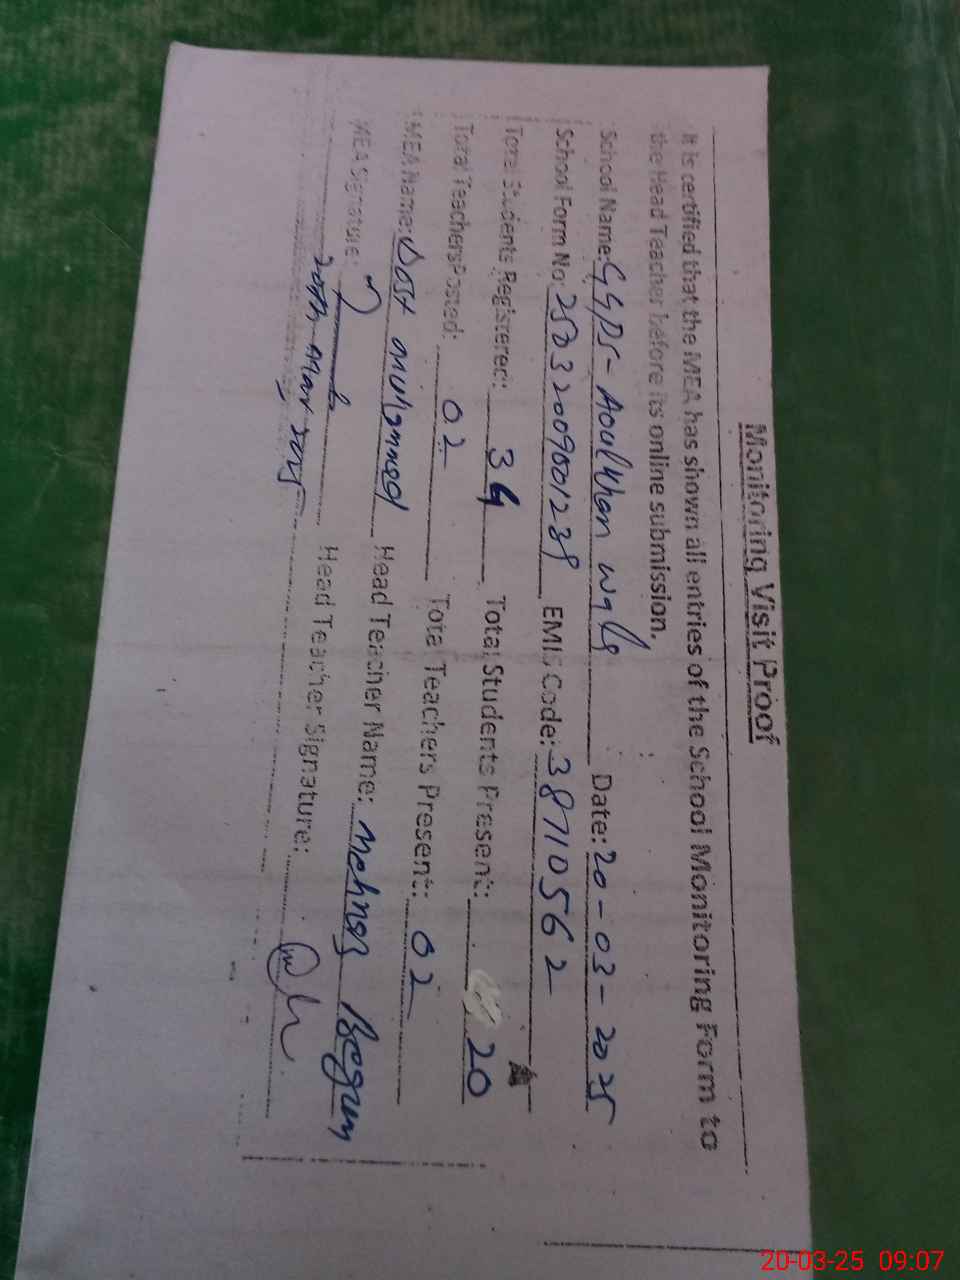 Monitoring Visit Proof
It is certified that the MEA has shown all entries of the School Monitoring Form to
the Head Teacher before its online submission.
School Name: GGPS- Aoulkhan wala Date: 20-03-2025
School Form No: EMIS Code: 38710562
Total Students Registered: 34 Total Students Present: 20
Total Teachers Posted: 02 Total Teachers Present: 02
MEA Name: Dost muhammed Head Teacher Name: mehnaz Begum
MEA Signature: Head Teacher Signature:
20th mar 2025
20-03-25 09:07